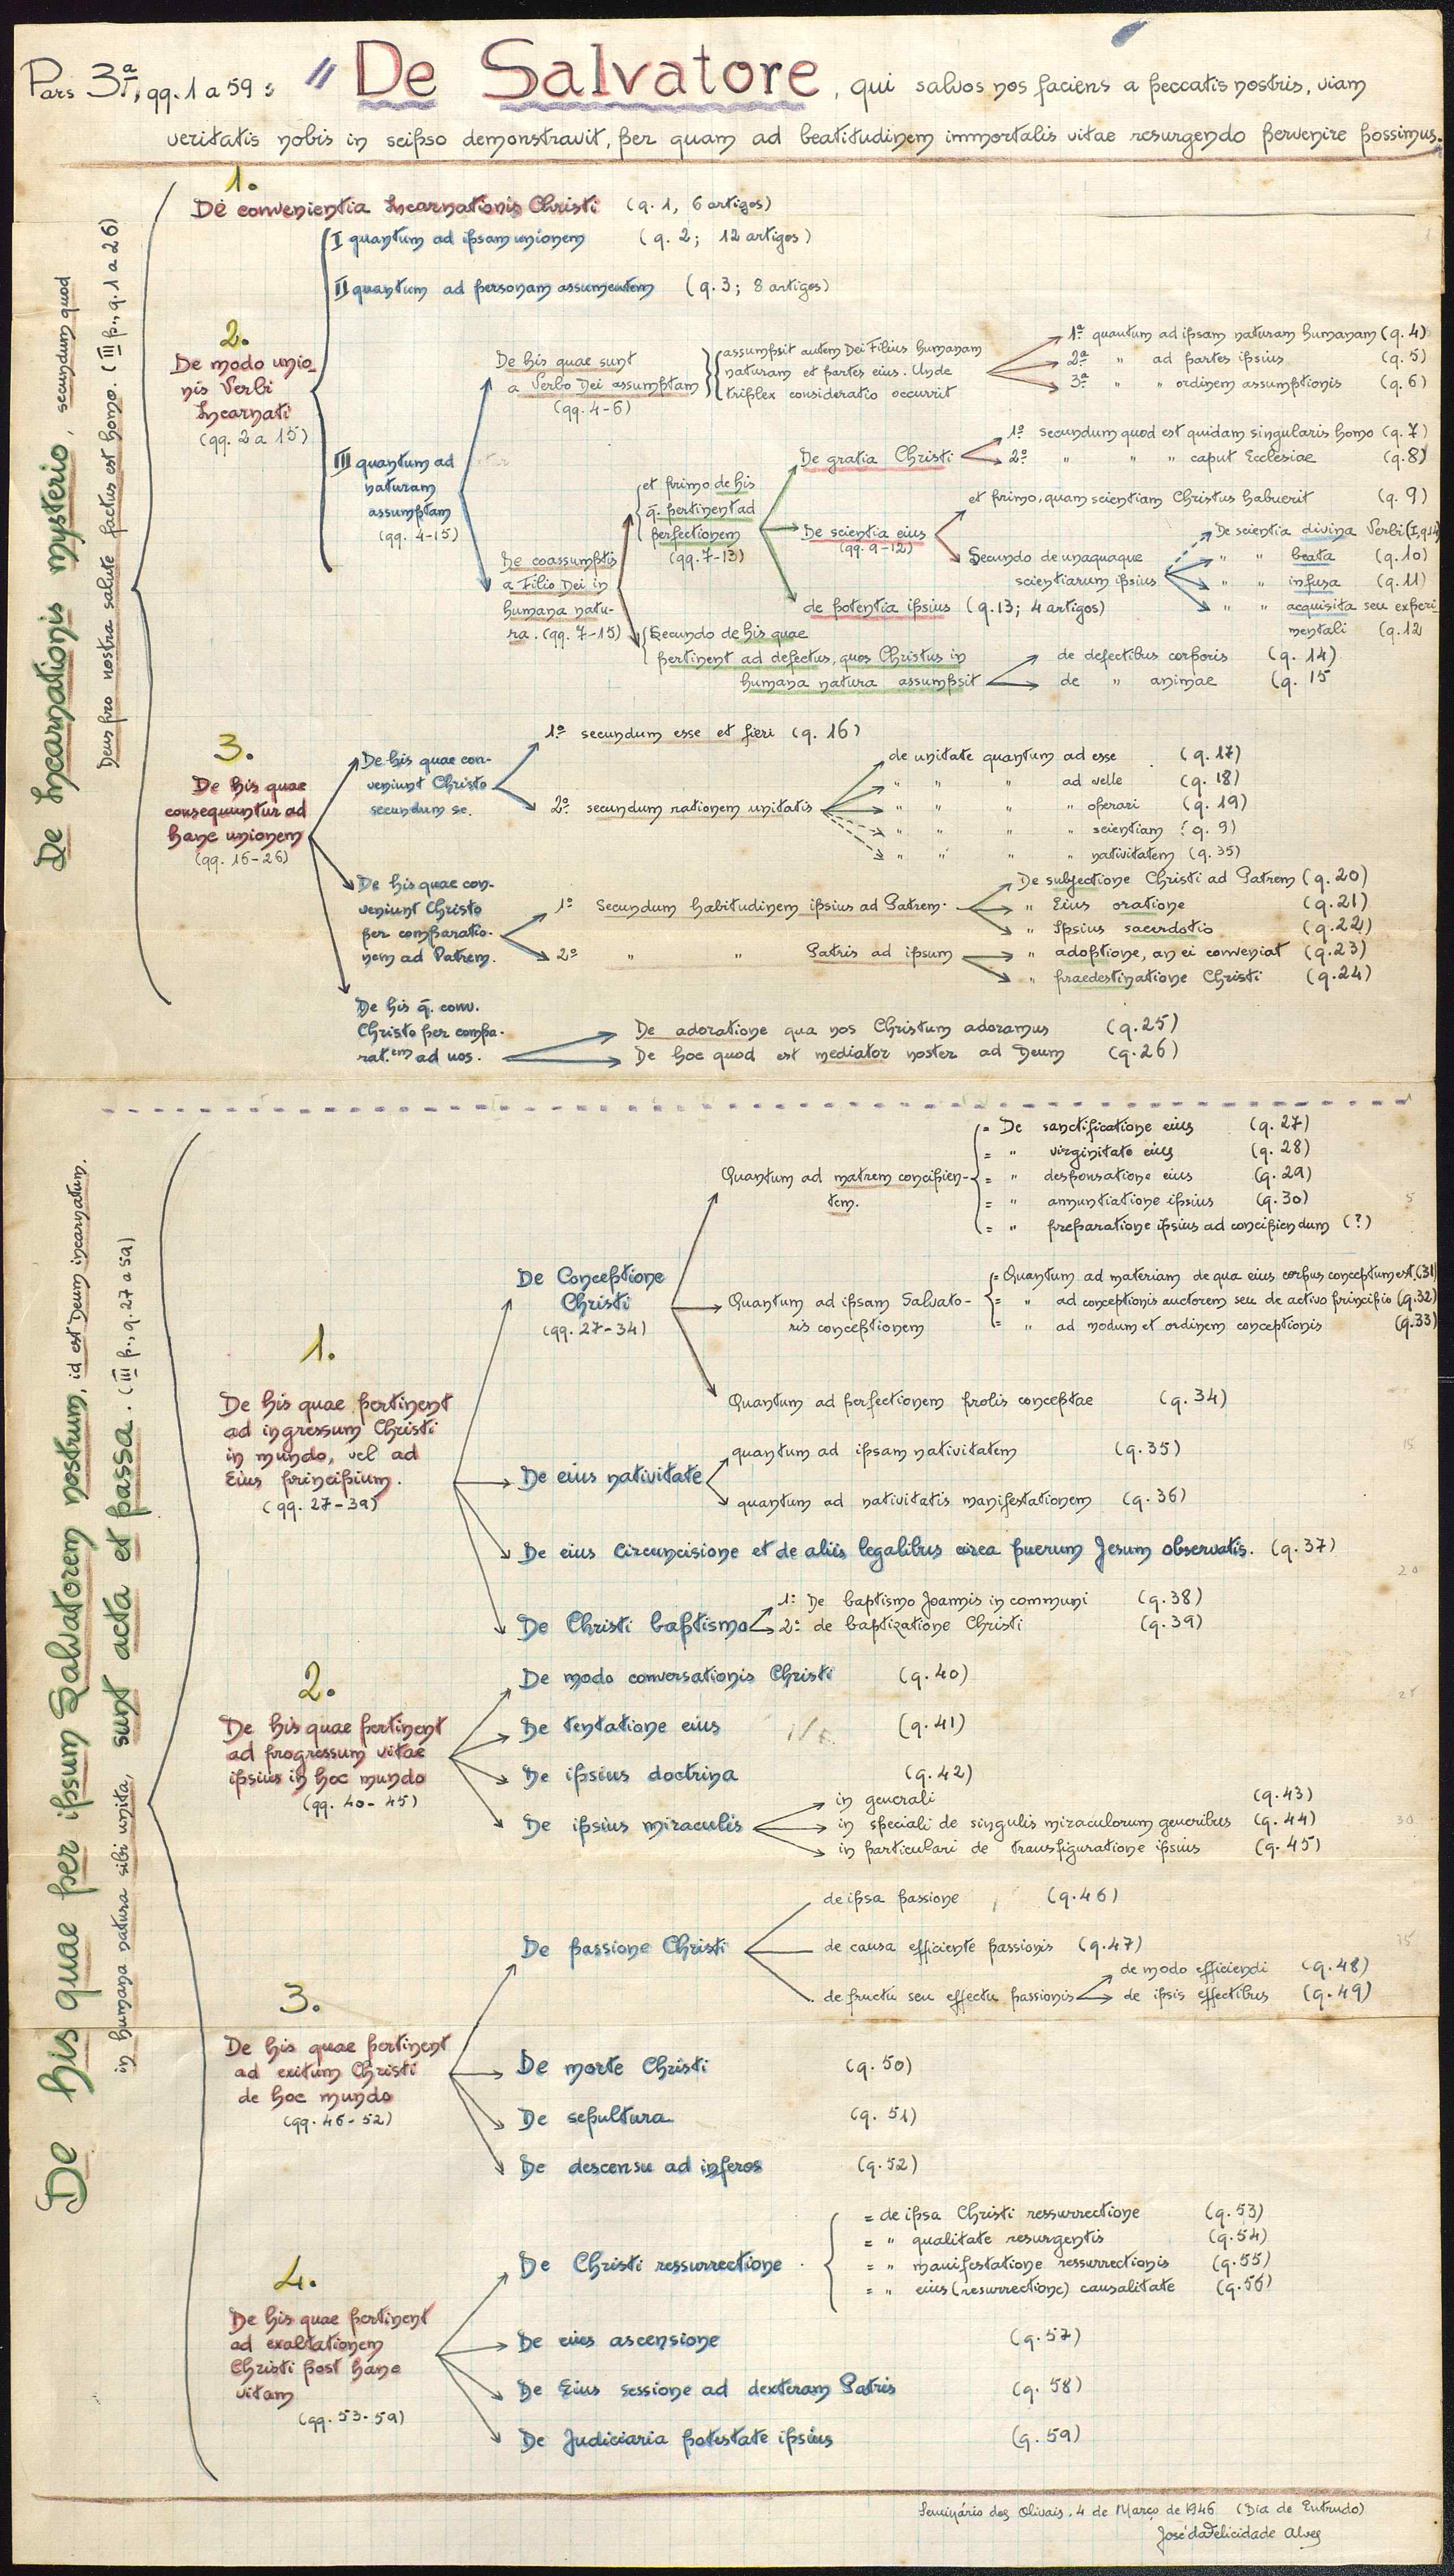 Pars 3ª, qq. 1 a 59: "De Salvatore, qui salvos nos faciens a peccatis nostris, viam
veritatis nobis in seipso demonstravit, per quam ad beatitudinem immortalis vitae resurgendo pervenire possimus.
De Incarnationis mysterio, secundum quod
Deus pro nostra salute factus est homo. (III p., q. 1 a 26)
1.
De convenientia Incarnationis Christi (q. 1, 6 artigos)
2.
De modo unio-
nis Verbi
Incarnati
(qq. 2 a 15)
I quantum ad ipsam unionem (q. 2; 12 artigos)
II quantum ad personam assumentem (q. 3; 8 artigos)
III quantum ad
naturam
assumptam
(qq. 4-15)
De his quae sunt
a Verbo Dei assumptam
(qq. 4-6)
assumpsit autem Dei Filius humanam
naturam et partes eius. Unde
triplex consideratio occurrit
1ª quantum ad ipsam naturam humanam (q. 4)
2ª " ad partes ipsius (q. 5)
3ª " " ordinem assumptionis (q. 6)
De coassumptis
a Filio Dei in
humana natu-
ra. (qq. 7-15)
et primo de his
q. pertinent ad
perfectionem
(qq. 7-13)
De gratia Christi
1º secundum quod est quidam singularis homo (q. 7)
2º " " " caput Ecclesiae (q. 8)
De scientia eius
(qq. 9-12)
et primo, quam scientiam Christus habuerit (q. 9)
Secundo de unaquaque
scientiarum ipsius
De scientia divina Verbi (I, q 14)
" " beata (q. 10)
" " infusa (q. 11)
" " acquisita seu experi
mentali (q. 12
de potentia ipsius (q. 13; 4 artigos)
Secundo de his quae
pertinent ad defectus, quos Christus in
humana natura assumpsit
de defectibus corporis (q. 14)
de " animae (q. 15
3.
De his quae
consequuntur ad
hanc unionem
(qq. 16-26)
De his quae con-
veniunt Christo
secundum se.
1º secundum esse et fieri (q. 16)
2º secundum rationem unitatis
de unitate quantum ad esse (q. 17)
" " " ad velle (q. 18)
" " " " operari (q. 19)
" " " " scientiam (q. 9)
" " " " nativitatem (q. 35)
De his quae con-
veniunt Christo
per comparatio-
nem ad Patrem.
1º Secundum habitudinem ipsius ad Patrem.
De subjectione Christi ad Patrem (q. 20)
" Eius oratione (q. 21)
" Ipsius sacerdotio (q. 22)
2º " " Patris ad ipsum
" adoptione, an ei conveniat (q. 23)
" praedestinatione Christi (q. 24)
De his q. conv.
Christo per compa-
rat.em ad nos.
De adoratione qua nos Christum adoramus (q. 25)
De hoc quod est mediator noster ad Deum (q. 26)
De his quae per ipsum Salvatorem nostrum, id est Deum incarnatum.
in humana natura sibi unita, sunt acta et passa. (III p., q. 27 a 59)
1.
De his quae pertinent
ad ingressum Christi
in mundo, vel ad
Eius principium.
(qq. 27-39)
De Conceptione
Christi
(qq. 27-34)
Quantum ad matrem concipien-
tem.
= De sanctificatione eius (q. 27)
= " virginitate eius (q. 28)
= " desponsatione eius (q. 29)
= " annuntiatione ipsius (q. 30)
= " preparatione ipsius ad concipiendum (?)
Quantum ad ipsam Salvato-
ris conceptionem
= Quantum ad materiam de qua eius corpus conceptum est. (31)
= " ad conceptionis auctorem seu de activo principio (q. 32)
= " ad modum et ordinem conceptionis (q. 33)
Quantum ad perfectionem prolis conceptae (q. 34)
De eius nativitate
quantum ad ipsam nativitatem (q. 35)
quantum ad nativitatis manifestationem (q. 36)
De eius Circuncisione et de aliis legalibus circa puerum Jesum observatis. (q. 37)
De Christi baptismo
1º De baptismo Joannis in communi (q. 38)
2º de baptizatione Christi (q. 39)
2.
De his quae pertinent
ad progressum vitae
ipsius in hoc mundo
(qq. 40-45)
De modo conversationis Christi (q. 40)
De tentatione eius (q. 41)
De ipsius doctrina (q. 42)
De ipsius miraculis
in generali (q. 43)
in speciali de singulis miraculorum generibus (q. 44)
in particulari de transfiguratione ipsius (q. 45)
3.
De his quae pertinent
ad exitum Christi
de hoc mundo
(qq. 46-52)
De passione Christi
de ipsa passione (q. 46)
de causa efficiente passionis (q. 47)
de fructu seu effectu passionis
de modo efficiendi (q. 48)
de ipsis effectibus (q. 49)
De morte Christi (q. 50)
De sepultura (q. 51)
De descensu ad inferos (q. 52)
4.
De his quae pertinent
ad exaltationem
Christi post hanc
vitam
(qq. 53-59)
De Christi ressurrectione.
= de ipsa Christi ressurrectione (q. 53)
= " qualitate resurgentis (q. 54)
= " manifestatione ressurrectionis (q. 55)
= " eius (resurrectione) causalitate (q. 56)
De eius ascensione (q. 57)
De Eius sessione ad dexteram Patris (q. 58)
De Judiciaria potestate ipsius (q. 59)
Seminário dos Olivais, 4 de Março de 1946 (Dia de Entrudo)
José da Felicidade Alves